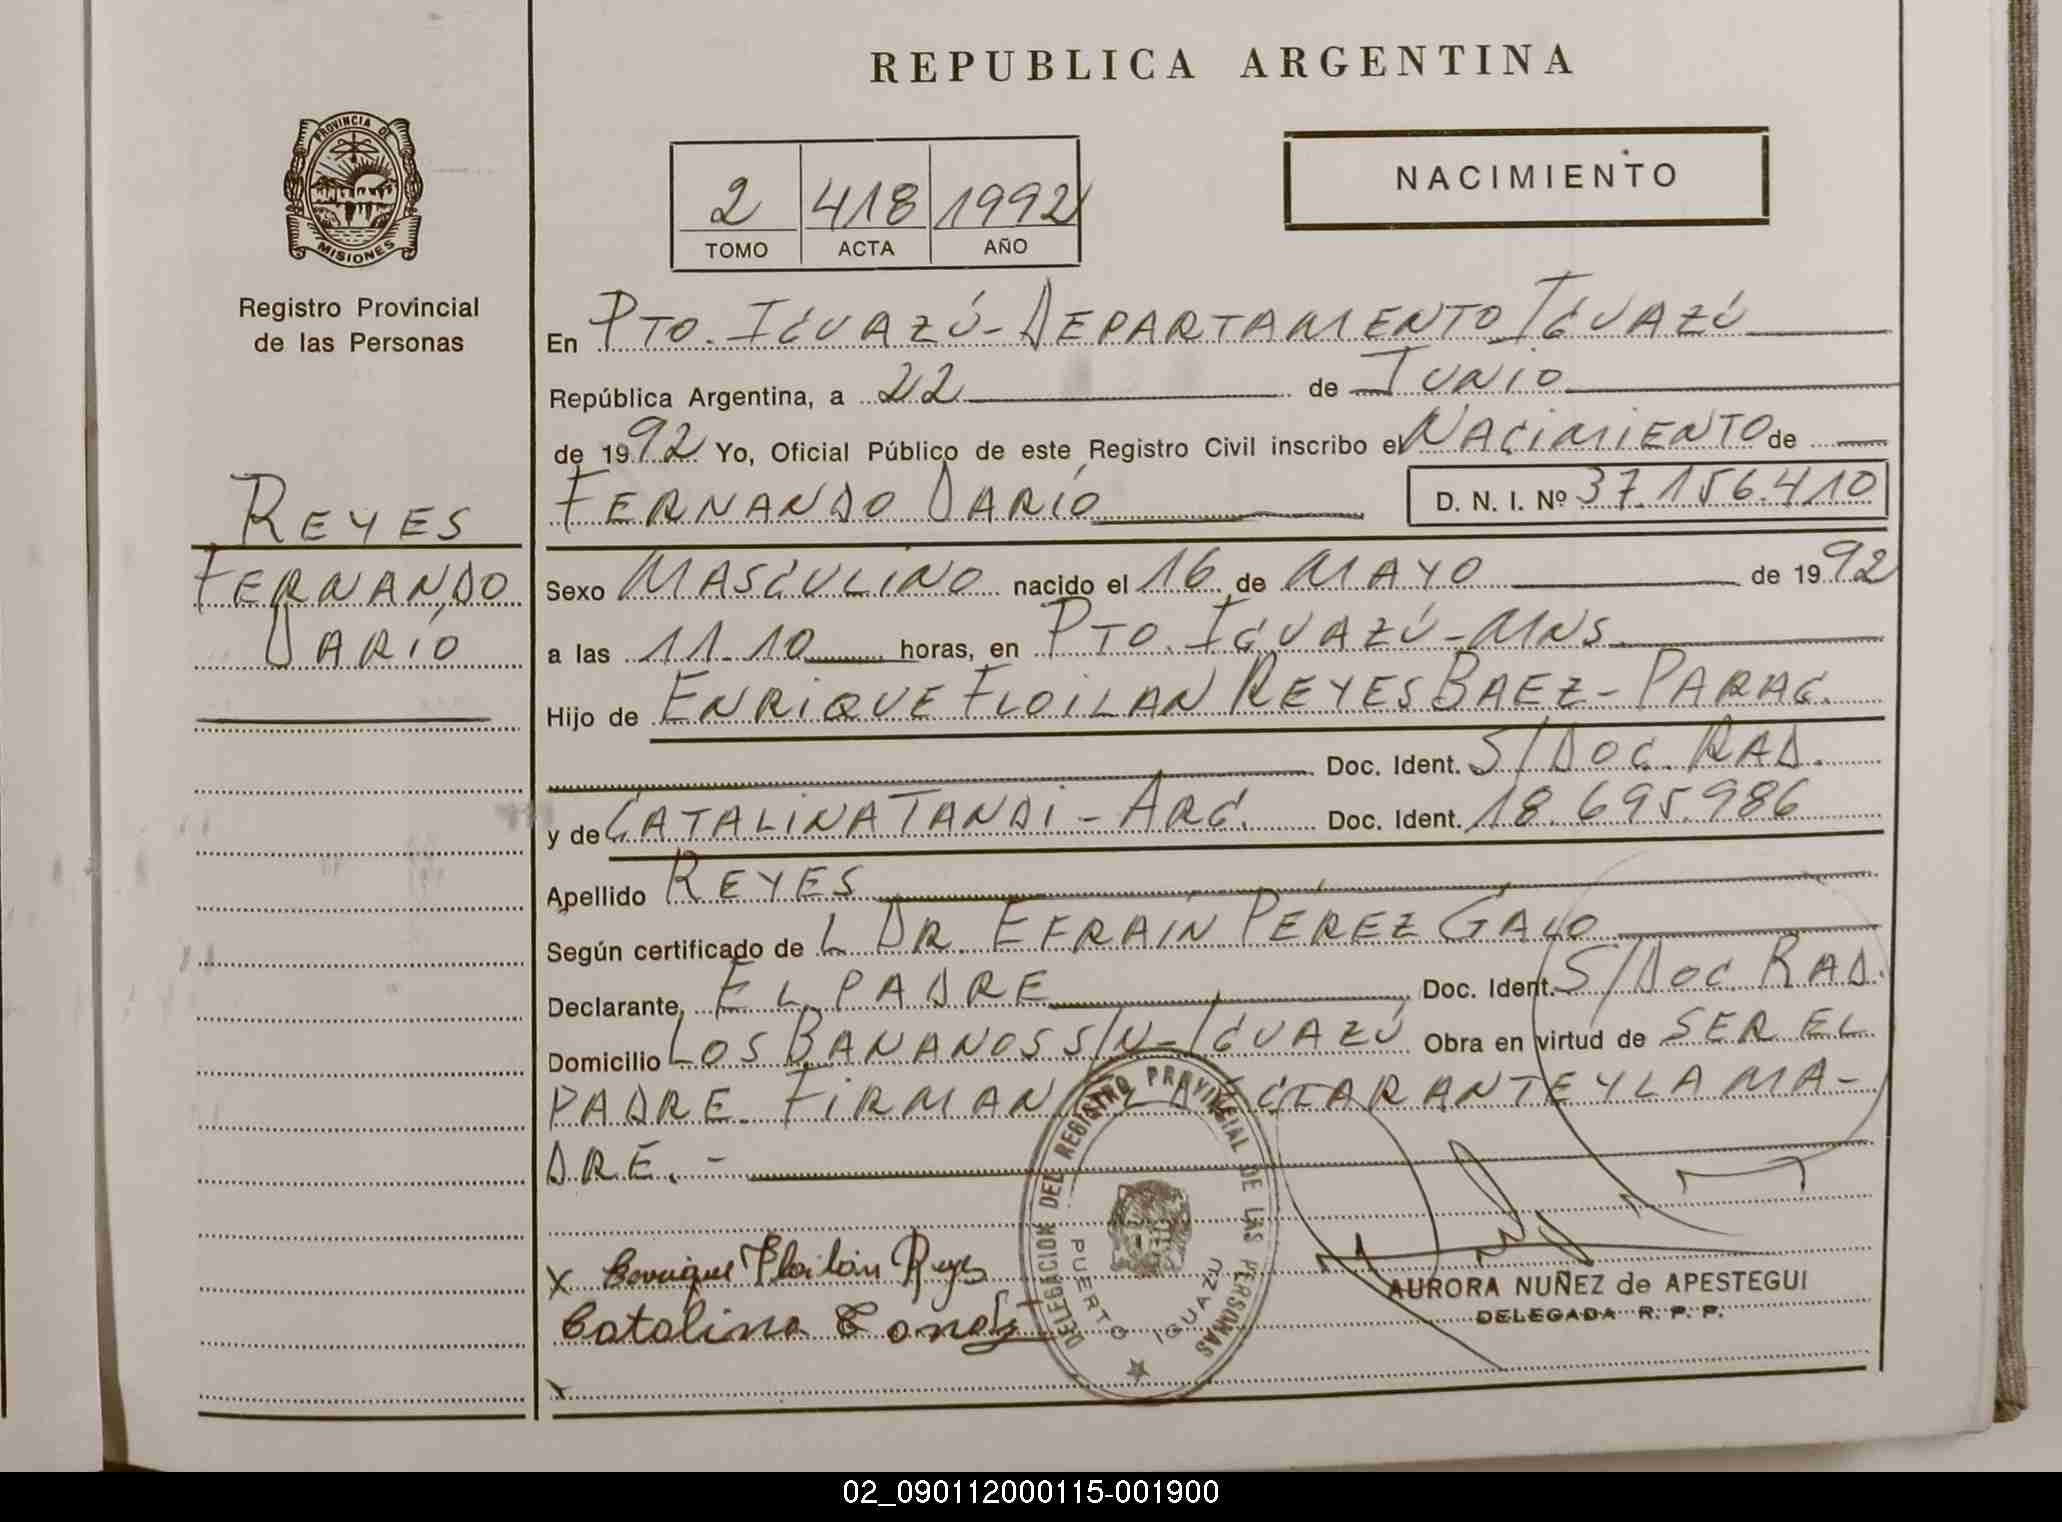 REPUBLICA ARGENTINA
PROVINCIA DE
MISIONES
Registro Provincial
de las Personas
2 418 1992
TOMO ACTA AÑO
NACIMIENTO
En PTO. IGUAZÚ - DEPARTAMENTO IGUAZÚ
República Argentina, a 22 de JUNIO
de 1992 Yo, Oficial Público de este Registro Civil inscribo el NACIMIENTO de
FERNANDO DARÍO D. N. I. Nº 37.156.410
REYES
FERNANDO
DARÍO
Sexo MASCULINO nacido el 16 de MAYO de 1992
a las 11.10 horas, en PTO. IGUAZÚ - MNS.
Hijo de ENRIQUE FLOILAN REYES BAEZ - PARAG.
Doc. Ident. S/DOC. RAD.
y de CATALINA TANDI - ARG. Doc. Ident. 18.695.986
Apellido REYES
Según certificado de L DR. EFRAÍN PÉREZ GALO
Declarante, EL PADRE Doc. Ident. S/DOC. RAD.
Domicilio LOS BANANOS S/N - IGUAZÚ Obra en virtud de SER EL
PADRE. FIRMAN DECLARANTE Y LA MA-
DRE. -
DELEGACION DEL REGISTRO PROVINCIAL DE LAS PERSONAS
PUERTO IGUAZU
X Enrique Floilán Reyes
Catalina
AURORA NUÑEZ de APESTEGUI
DELEGADA R. P. P.
02_090112000115-001900